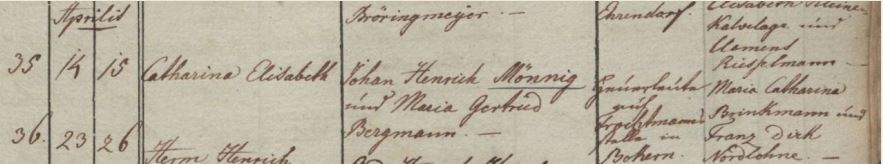 Aprilis
Bröringmeyer. —
Ehrendorf.
Elisabeth Kleine-
Kalvelage und
Clemens
Riesselmann —
35 14 15 Catharina Elisabeth
Johan Henrich Mönnig
und Maria Gertrud
Bergmann. —
Heuerleute
auf
stelle in
Bokern.
Maria Catharina
Brinkmann und
Franz Dirk
Nordlohne. —
36. 23 26
Herm Henrich